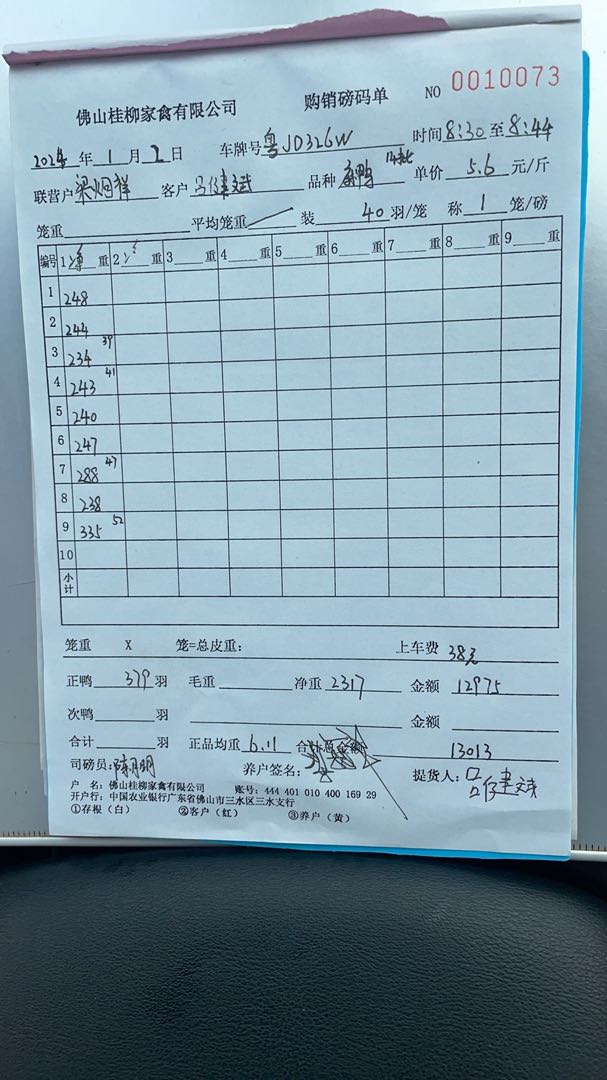 佛山桂柳家禽有限公司 购销磅码单 NO 0010073
2024 年 1 月 2 日 车牌号 粤JD326W 时间 8:30 至 8:44
联营户 梁炯祥 客户 吕健斌 品种 单价 5.6 元/斤
笼重 平均笼重 装 40 羽/笼 称 1 笼/磅
编号 1 净 重 2 重 3 重 4 重 5 重 6 重 7 重 8 重 9 重
1 248
2 244
3 234 39
4 243 41
5 240
6 247
7 288 47
8 238
9 335 52
10
小计
笼重 X 笼=总皮重: 上车费 38元
正鸭 379 羽 毛重 净重 2317 金额 12975
次鸭 羽 金额
合计 羽 正品均重 6.11 合计总金额 13013
司磅员: 养户签名: 提货人: 吕健斌
户 名: 佛山桂柳家禽有限公司 账号: 444 401 010 400 169 29
开户行: 中国农业银行广东省佛山市三水区三水支行
①存根(白) ②客户(红) ③养户(黄)